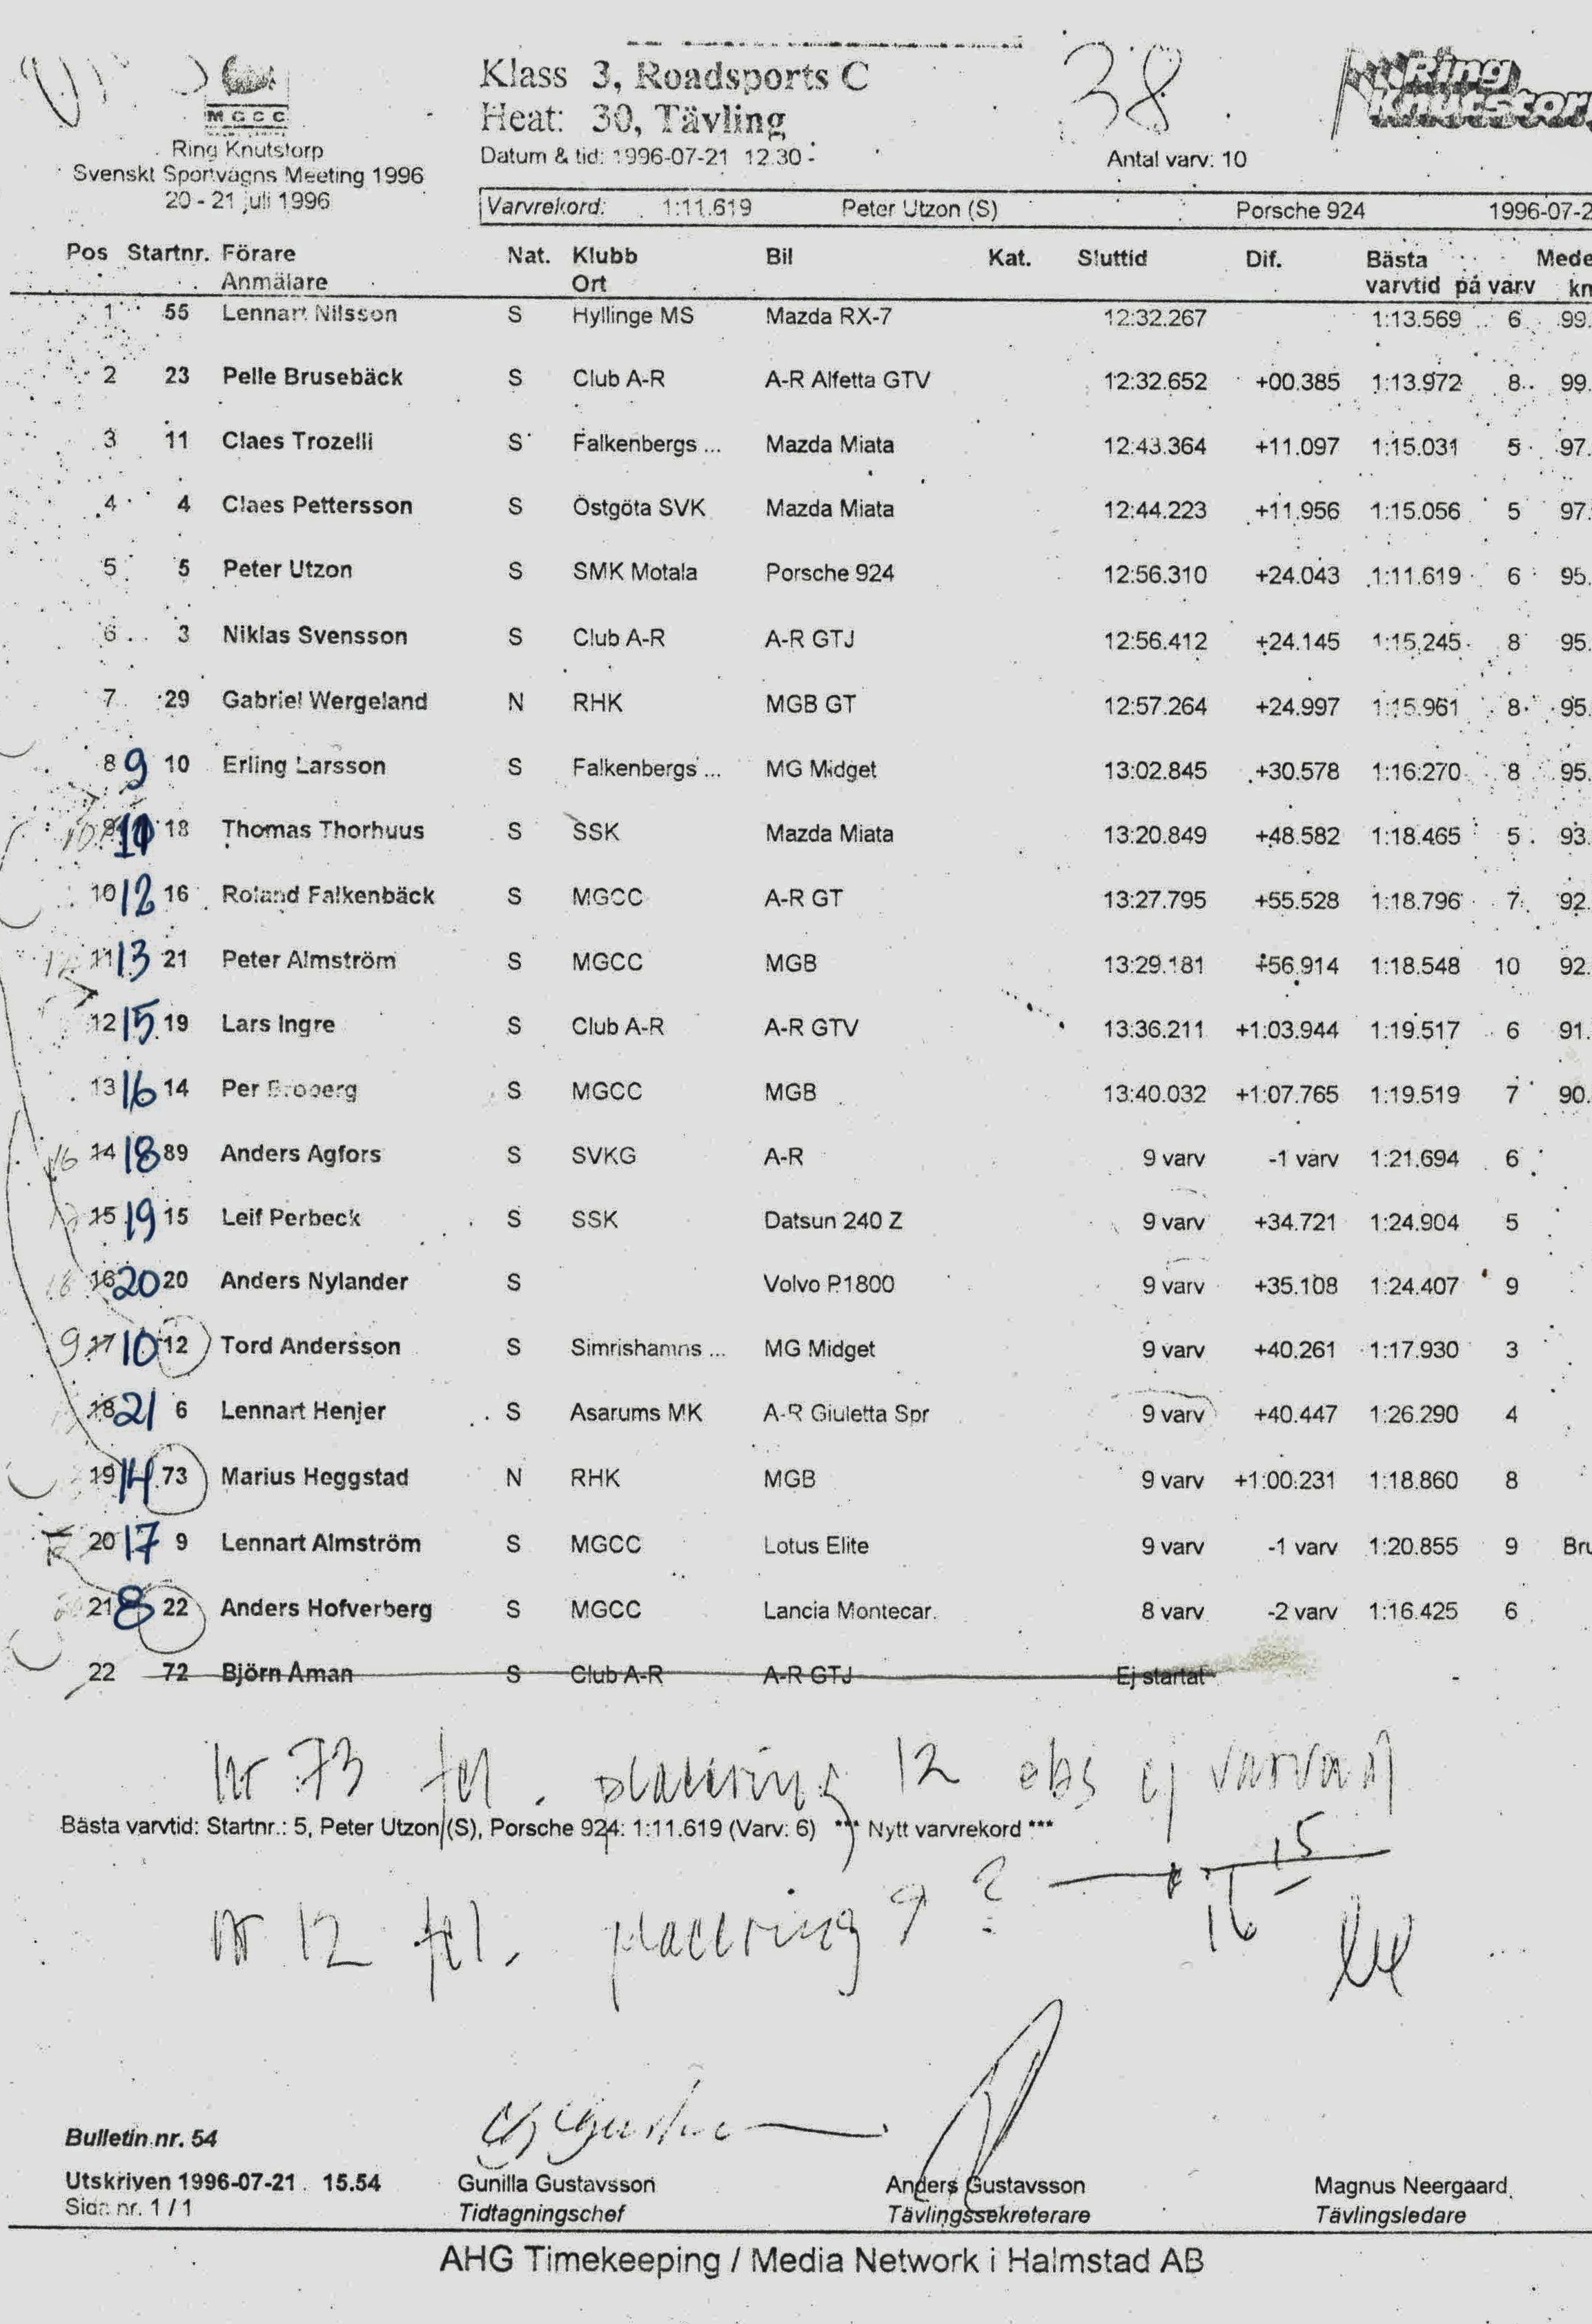 Klass 3, Roadsports C
38
Ring Knutstor
MGCC
Heat: 30, Tävling
Ring Knutstorp
Datum & tid: 1996-07-21 12.30
Antal varv: 10
Svenskt Sportvagns Meeting 1996
20 - 21 juli 1996
Varvrekord: 1:11.619 Peter Utzon (S) Porsche 924 1996-07-2
Pos Startnr. Förare Nat. Klubb Bil Kat. Sluttid Dif. Bästa Mede
Anmälare Ort varvtid på varv km
1 55 Lennart Nilsson S Hyllinge MS Mazda RX-7 12:32.267 1:13.569 6 99.
2 23 Pelle Brusebäck S Club A-R A-R Alfetta GTV 12:32.652 +00.385 1:13.972 8 99.
3 11 Claes Trozelli S Falkenbergs ... Mazda Miata 12:43.364 +11.097 1:15.031 5 97.
4 4 Claes Pettersson S Östgöta SVK Mazda Miata 12:44.223 +11.956 1:15.056 5 97.
5 5 Peter Utzon S SMK Motala Porsche 924 12:56.310 +24.043 1:11.619 6 95.
6 3 Niklas Svensson S Club A-R A-R GTJ 12:56.412 +24.145 1:15.245 8 95.
7 29 Gabriel Wergeland N RHK MGB GT 12:57.264 +24.997 1:15.961 8 95.
8 9 10 Erling Larsson S Falkenbergs ... MG Midget 13:02.845 +30.578 1:16.270 8 95.
10 9 11 18 Thomas Thorhuus S SSK Mazda Miata 13:20.849 +48.582 1:18.465 5 93.
10 12 16 Roland Falkenbäck S MGCC A-R GT 13:27.795 +55.528 1:18.796 7 92.
11 13 21 Peter Almström S MGCC MGB 13:29.181 +56.914 1:18.548 10 92.
12 15 19 Lars Ingre S Club A-R A-R GTV 13:36.211 +1:03.944 1:19.517 6 91.
13 16 14 Per Broberg S MGCC MGB 13:40.032 +1:07.765 1:19.519 7 90.
16 14 18 89 Anders Agfors S SVKG A-R 9 varv -1 varv 1:21.694 6
15 19 15 Leif Perbeck S SSK Datsun 240 Z 9 varv +34.721 1:24.904 5
18 16 20 20 Anders Nylander S Volvo P1800 9 varv +35.108 1:24.407 9
9 17 10 12 Tord Andersson S Simrishamns ... MG Midget 9 varv +40.261 1:17.930 3
18 21 6 Lennart Henjer S Asarums MK A-R Giuletta Spr 9 varv +40.447 1:26.290 4
19 14 73 Marius Heggstad N RHK MGB 9 varv +1:00.231 1:18.860 8
20 17 9 Lennart Almström S MGCC Lotus Elite 9 varv -1 varv 1:20.855 9 Bru
21 8 22 Anders Hofverberg S MGCC Lancia Montecar. 8 varv -2 varv 1:16.425 6
22 72 Björn Åman S Club A-R A-R GTJ Ej startat -
Nr 73 fel. placering 12 obs ej varvad
Bästa varvtid: Startnr.: 5, Peter Utzon (S), Porsche 924: 1:11.619 (Varv: 6) *** Nytt varvrekord ***
15
Nr 12 fel. placering 9 ? 16
Bulletin nr. 54
Utskriven 1996-07-21 15.54 Gunilla Gustavsson Anders Gustavsson Magnus Neergaard
Sida nr. 1 / 1 Tidtagningschef Tävlingssekreterare Tävlingsledare
AHG Timekeeping / Media Network i Halmstad AB